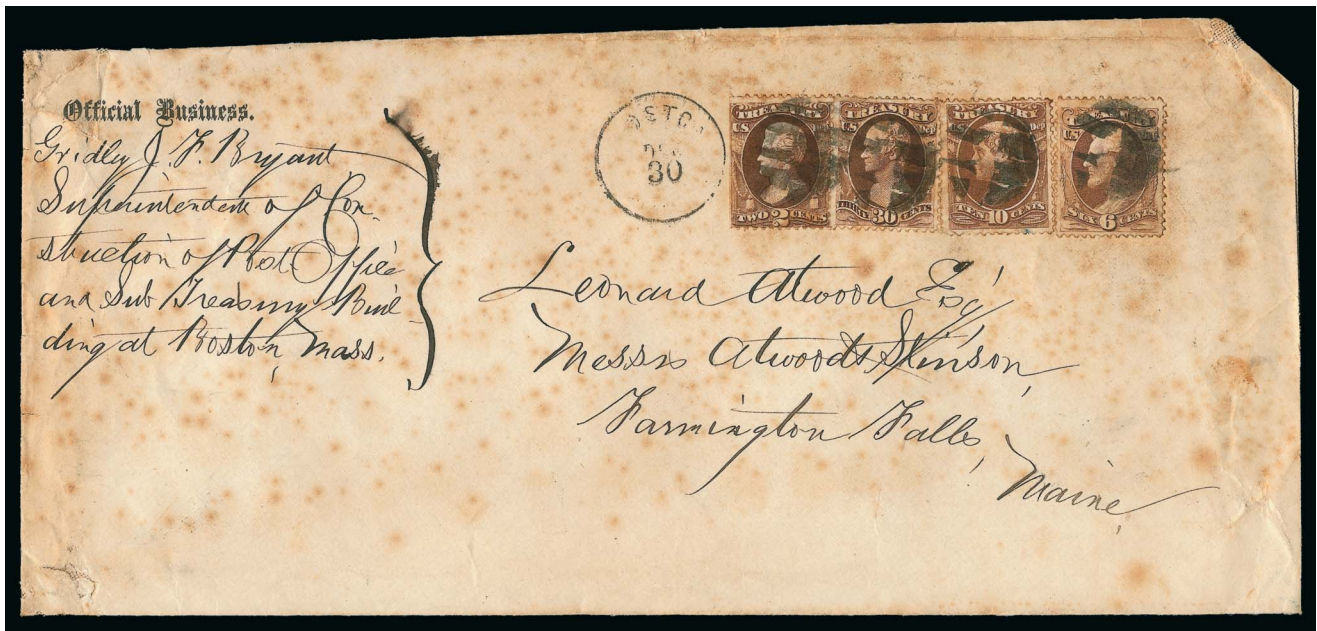 Official Business.
Gridley J. F. Bryant
Superintendent of Con-
struction of Post Office
and Sub Treasury Buil-
ding at Boston, Mass.
BOSTON
DEC
30
TREASURY
U.S. DEPT
TWO 2 CENTS
TREASURY
U.S. DEPT
THIRTY 30 CENTS
TREASURY
U.S. DEPT
TEN 10 CENTS
SIX 6 CENTS
Leonard Atwood Esq
Messrs Atwood & Stinson,
Farmington Falls,
Maine